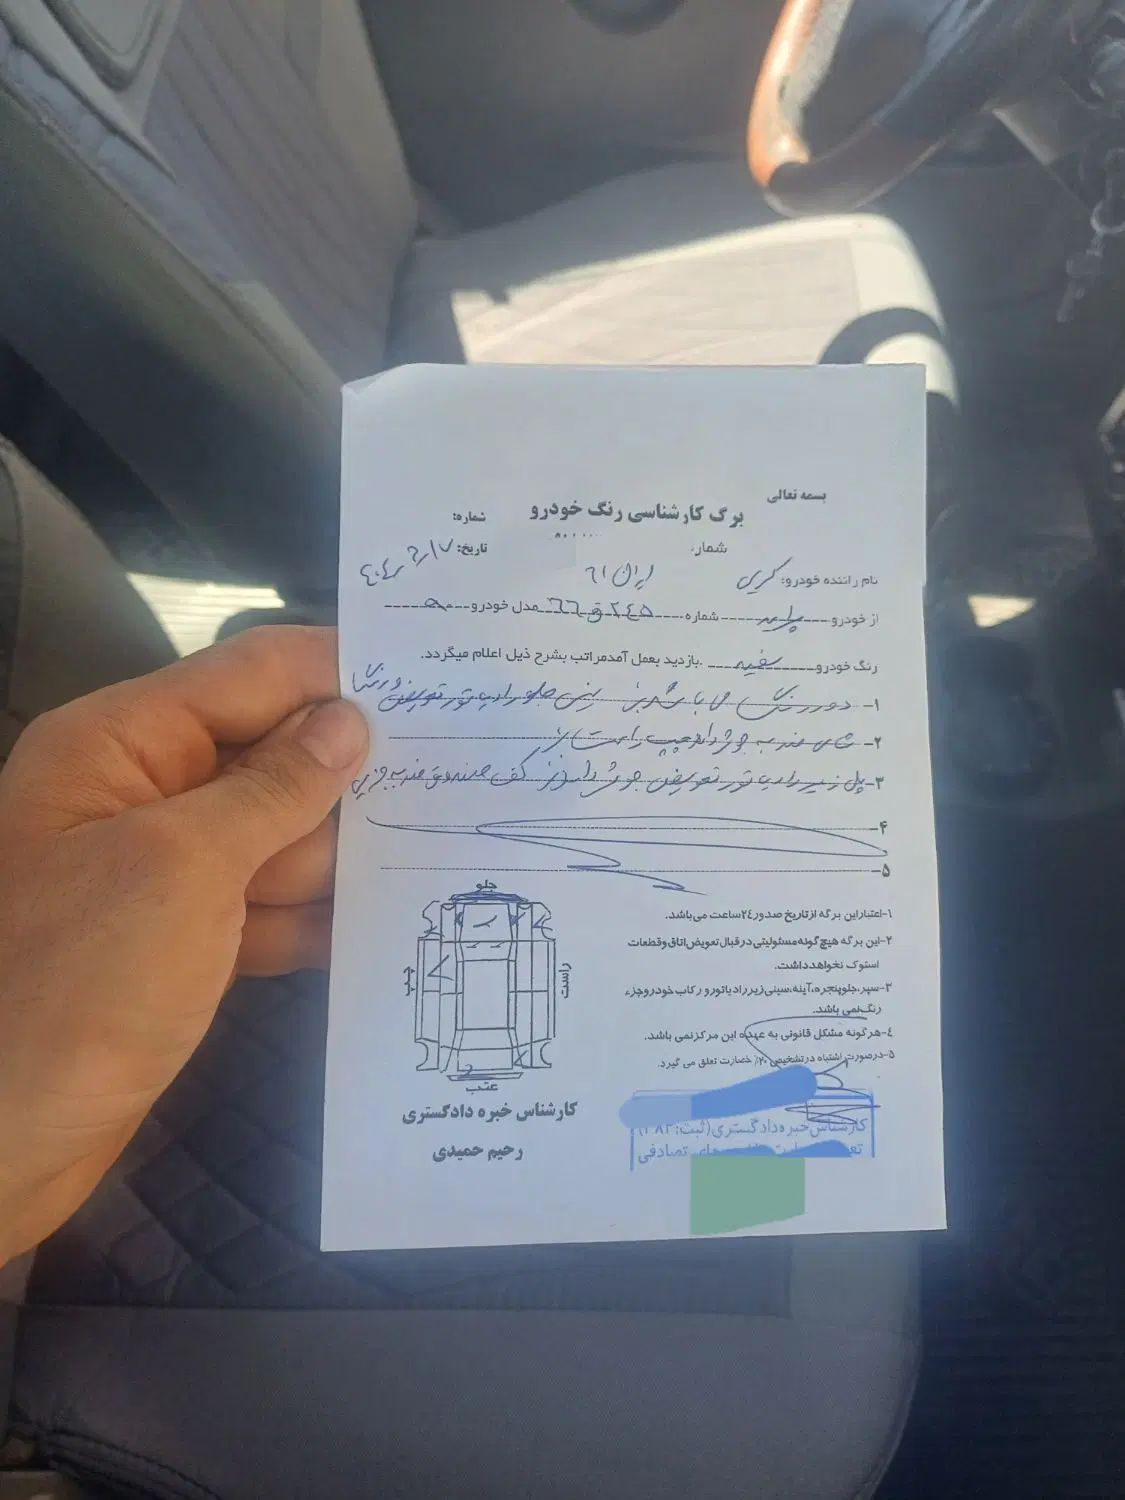 بسمه تعالی
برگ کارشناسی رنگ خودرو
شماره:
شمار
تاریخ:
نام راننده خودرو:
ایران ۶۱
از خودرو پراید شماره مدل خودرو
رنگ خودرو سفید بازدید بعمل آمدمراتب بشرح ذیل اعلام میگردد.
۱- دور رنگ می باشد سینی جلو رادیاتور تعویض
۲- شاسی ضربه جوش دارد چپ راست
۳- پل زیر رادیاتور تعویض جوش دارد کف صندوق ضربه جزیی
۴-
۵-
جلو
چپ
راست
عقب
۱-اعتباراین برگه ازتاریخ صدور۲٤ساعت می‌باشد.
۲-این برگه هیچ گونه‌مسئولیتی‌درقبال‌تعویض‌اتاق‌وقطعات
استوک نخواهدداشت.
۳-سپر،جلوپنجره،آینه،سینی‌زیررادیاتورو رکاب خودروجزء
رنگ‌نمی باشد.
٤-هرگونه مشکل قانونی به عهده این مرکزنمی باشد.
۵-درصورت اشتباه درتشخیص ۲۰٪ خسارت تعلق می گیرد.
کارشناس خبره دادگستری
رحیم حمیدی
کارشناس خبره دادگستری(ثبت:
تصادفی